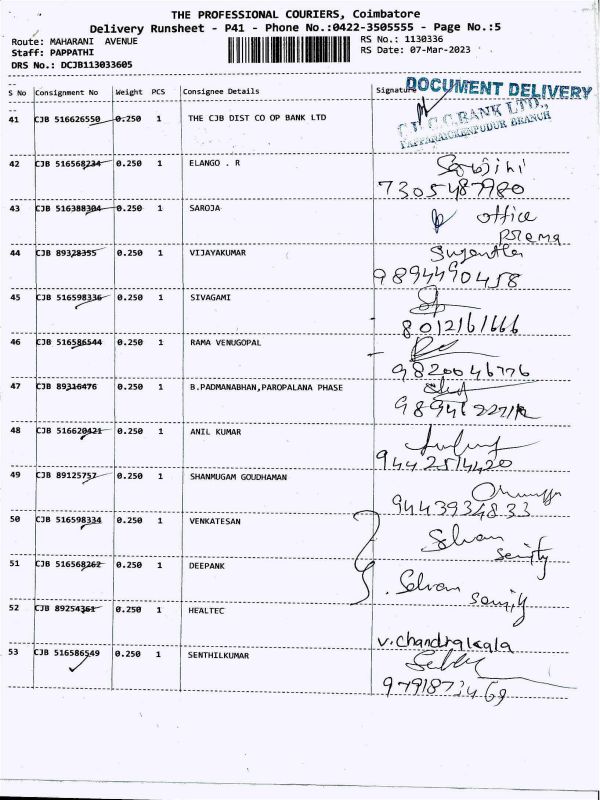 THE PROFESSIONAL COURIERS, Coimbatore
Delivery Runsheet - P41 - Phone No.:0422-3505555 - Page No.:5
Route: MAHARANI AVENUE
RS No.: 1130336
Staff: PAPPATHI
RS Date: 07-Mar-2023
DRS No.: DCJB113033605
S No Consignment No Weight PCS Consignee Details Signature
DOCUMENT DELIVERY
41 CJB 516626550 0.250 1 THE CJB DIST CO OP BANK LTD
C.D.C.C.BANK LTD.,
PAPPANAICKENPUDUR BRANCH
42 CJB 516568234 0.250 1 ELANGO . R Sarojini
7305487980
43 CJB 516388304 0.250 1 SAROJA office
Prema
44 CJB 89328355 0.250 1 VIJAYAKUMAR
9894490458
45 CJB 516598336 0.250 1 SIVAGAMI
8012161666
46 CJB 516586544 0.250 1 RAMA VENUGOPAL
9820046776
47 CJB 89316476 0.250 1 B.PADMANABHAN,PAROPALANA PHASE
48 CJB 516620421 0.250 1 ANIL KUMAR
9442514420
49 CJB 89125757 0.250 1 SHANMUGAM GOUDHAMAN
9443934833
50 CJB 516598334 0.250 1 VENKATESAN Selvan
51 CJB 516568262 0.250 1 DEEPANK Selvan
52 CJB 89254361 0.250 1 HEALTEC
V. Chandralekala
53 CJB 516586549 0.250 1 SENTHILKUMAR
9791873469